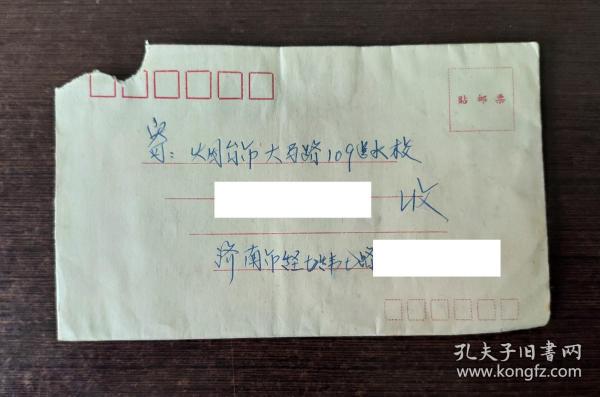 贴邮票
寄：烟台市大马路109号水校
收
济南市经七纬七路
孔夫子旧书网
www.kongfz.com